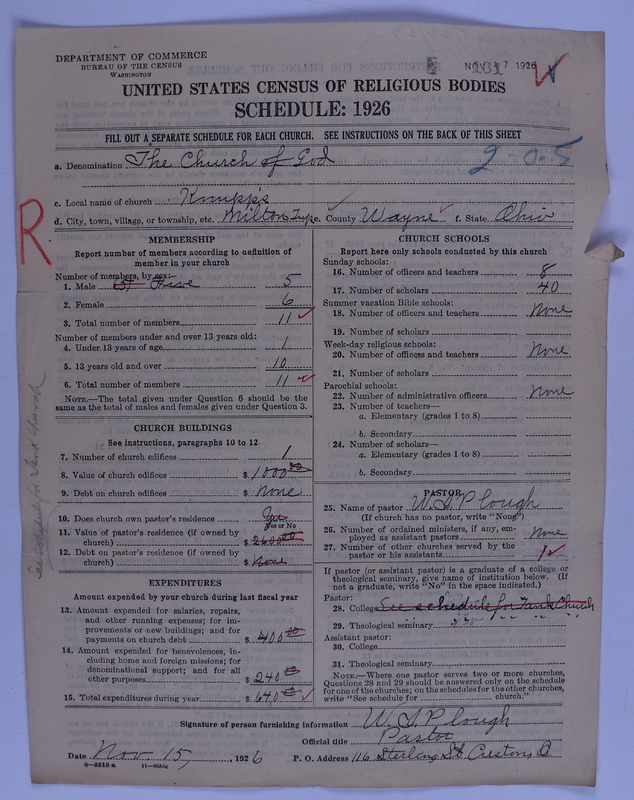 DEPARTMENT OF COMMERCE
BUREAU OF THE CENSUS
WASHINGTON
NOV 17 1926
131
UNITED STATES CENSUS OF RELIGIOUS BODIES
SCHEDULE: 1926
FILL OUT A SEPARATE SCHEDULE FOR EACH CHURCH. SEE INSTRUCTIONS ON THE BACK OF THIS SHEET
a. Denomination The Church of God
2-0-5
c. Local name of church Knupp's
d. City, town, village, or township, etc. Milton Twp. e. County Wayne f. State Ohio
R
MEMBERSHIP
Report number of members according to definition of
member in your church
Number of members, by sex:
1. Male (5) Five 5
2. Female 6
3. Total number of members 11
Number of members under and over 13 years old:
4. Under 13 years of age 1
5. 13 years old and over 10
6. Total number of members 11
NOTE.—The total given under Question 6 should be
the same as the total of males and females given under Question 3.
CHURCH BUILDINGS
See instructions, paragraphs 10 to 12
7. Number of church edifices 1
8. Value of church edifices $ 1000 00
9. Debt on church edifices $ None
10. Does church own pastor's residence Yes
Yes or No
11. Value of pastor's residence (if owned by
church) $ 2600 00
12. Debt on pastor's residence (if owned by
church) $ None
EXPENDITURES
Amount expended by your church during last fiscal year
13. Amount expended for salaries, repairs,
and other running expenses; for im-
provements or new buildings; and for
payments on church debt $ 400 00
14. Amount expended for benevolences, in-
cluding home and foreign missions; for
denominational support; and for all
other purposes $ 240 00
15. Total expenditures during year $ 640 00
CHURCH SCHOOLS
Report here only schools conducted by this church
Sunday schools:
16. Number of officers and teachers 8
17. Number of scholars 40
Summer vacation Bible schools:
18. Number of officers and teachers None
19. Number of scholars
Week-day religious schools:
20. Number of officers and teachers None
21. Number of scholars
Parochial schools:
22. Number of administrative officers None
23. Number of teachers—
a. Elementary (grades 1 to 8)
b. Secondary
24. Number of scholars—
a. Elementary (grades 1 to 8)
b. Secondary
PASTOR
25. Name of pastor W. I. Plough
(If church has no pastor, write "None")
26. Number of ordained ministers, if any, em-
ployed as assistant pastors None
27. Number of other churches served by the
pastor or his assistants 1
If pastor (or assistant pastor) is a graduate of a college or
theological seminary, give name of institution below. (If
not a graduate, write "No" in the space indicated.)
Pastor:
28. College See schedule for Tank Church
29. Theological seminary " " " " "
Assistant pastor:
30. College
31. Theological seminary
NOTE.—Where one pastor serves two or more churches,
Questions 28 and 29 should be answered only on the schedule
for one of the churches; on the schedules for the other churches,
write "See schedule for church."
See schedule for Tank Church
Signature of person furnishing information W. I. Plough
Official title Pastor
Date Nov. 15, 1926 P. O. Address 116 Sterling St. Creston, O.
8—5518a 11—9051a